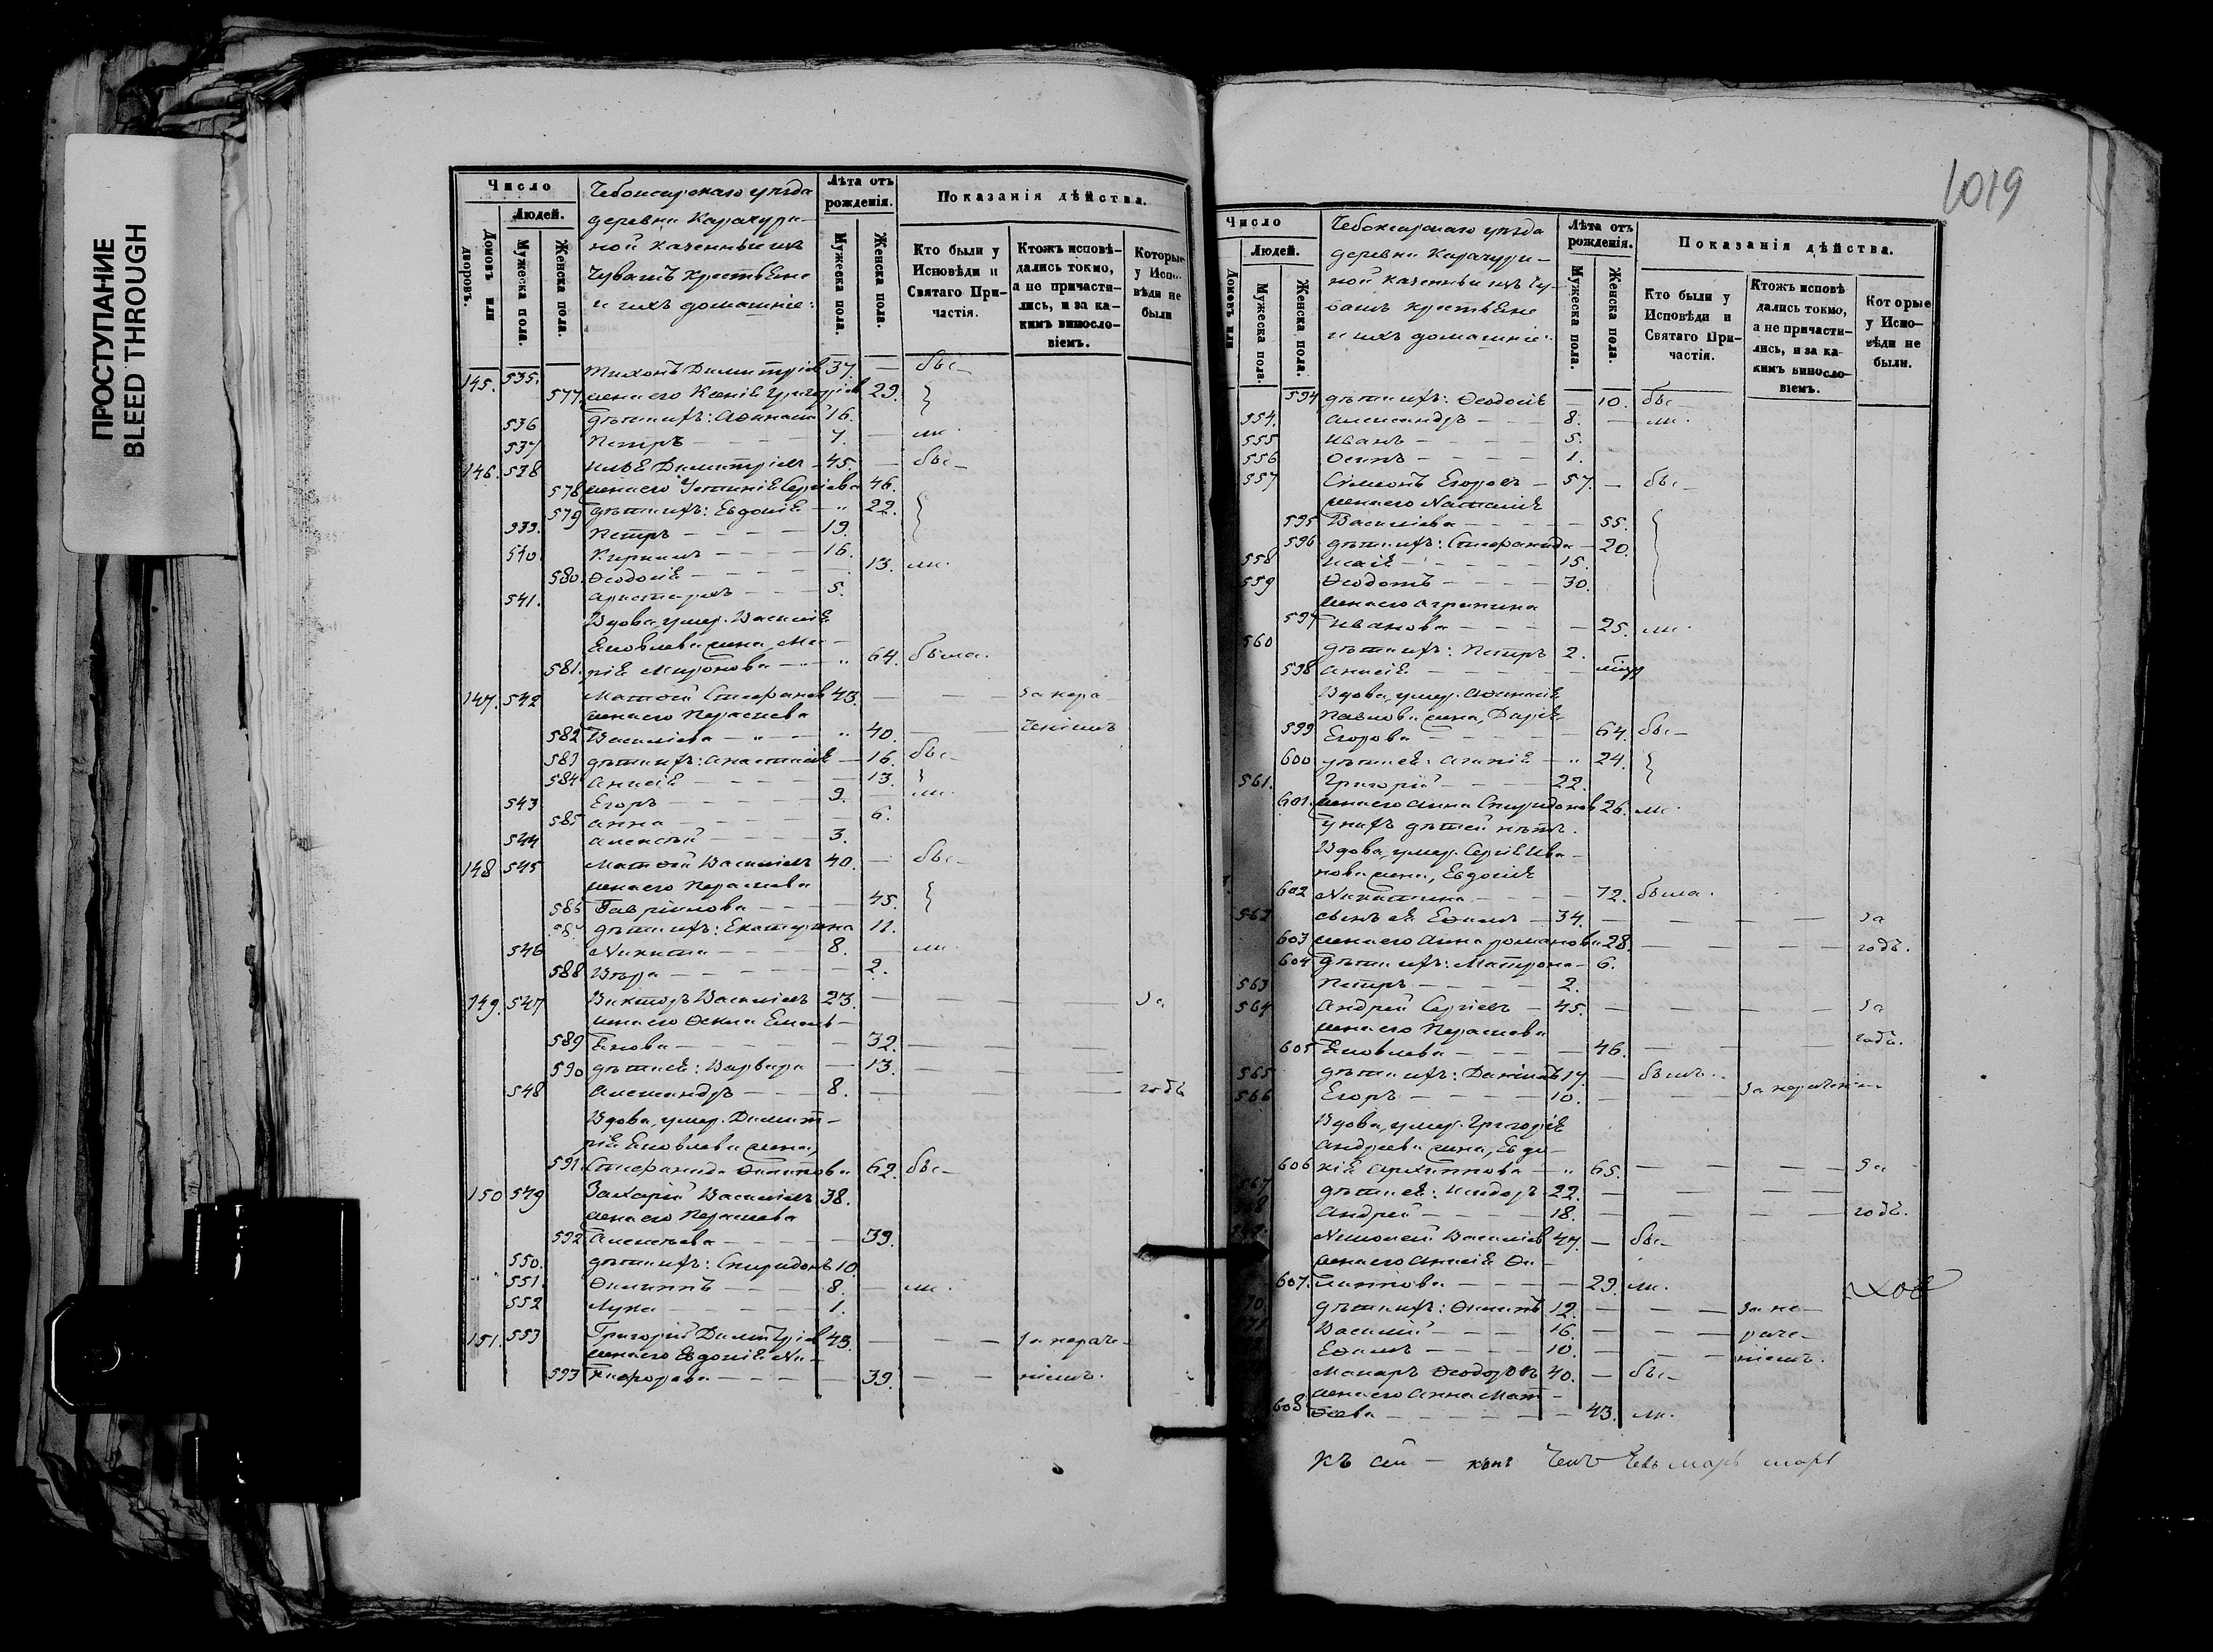 ПРОСТУПАНИЕ
BLEED THROUGH
Число
Людей.
Домовъ или дворовъ.
Мужеска пола.
Женска пола.
Чебоксарскаго уѣзда
деревни Карачури-
ной казенные изъ
Чувашъ крестьяне
и ихъ домашніе:
Лѣта отъ рожденія.
Мужеска пола.
Женска пола.
Показанія дѣйства.
Кто были у Исповѣди и Святаго Причастія.
Ктожъ исповѣдались токмо, а не причастились, и за какимъ винословіемъ.
Которые у Исповѣди не были
145. 535. Тихонъ Димитріев 37. — бы-
577. жена его Ксенія Григоріев 29. }
536 дѣти ихъ: Афанасій 16.
537 Петръ — — — 7. — ли.
146. 538 Илья Димитріевъ — 45. — бы-
578 жена его Устинія Сергіева 46.
579 дѣти ихъ: Евдокія — " 22. }
539. Петръ — — — 19.
540. Кириллъ — — — 16.
580. Ѳеодосія — — — 13. ли.
541. Аристархъ — — — 5.
Вдова, умер. Василія
Яковлева жена, Ма-
581. рія Миронова — " 64. была.
147. 542 Матѳей Стефанов 43. — — за нера-
жена его Параскева
582 Василіева — " — " 40. — ченіемъ
583 дѣти ихъ: Анастасія — 16. бы-
584 Анисія — — — 13. }
543 Егоръ — — — 9. — ли.
585 Анна — — — 6.
544 Алексѣй — — — 3.
148 545 Матѳей Василіевъ 40. — бы-
жена его Параскева
586 Гавріилова — — — 45. }
дѣти ихъ: Екатерина 11.
546 Никита — — — 8. — ли.
588 Вѣра — — — 2.
149. 547 Викторъ Василіевъ 23. — — — За
жена его Ѳекла Емель-
589 янова — — — 32. — —
590 дѣти ея: Варвара — 13. — —
548 Александръ — — 8. — — — годъ
Вдова, умер. Димит-
рія Яковлева жена,
591. Стефанида Филипова 62. бы-
150 549 Захарій Василіевъ 38.
жена его Параскева
592. Алексѣева — — — 39.
550. дѣти ихъ: Спиридонъ 10.
551. Филиппъ — — 8. — ли.
552 Лука — — — 1.
151. 553 Григорій Димитріев 43. — — за нераче-
жена его Евдокія Ни-
593 кифорова — — — 39. — — ніемъ.
1019
Число
Людей.
Домовъ или
Мужеска пола.
Женска пола.
Чебоксарскаго уѣзда
деревни Карачури-
ной казенные изъ Чу-
вашъ крестьяне
и ихъ домашніе:
Лѣта отъ рожденія.
Мужеска пола.
Женска пола.
Показанія дѣйства.
Кто были у Исповѣди и Святаго Причастія.
Ктожъ исповѣдались токмо, а не причастились, и за какимъ винословіемъ.
Которые у Исповѣди не были.
594 дѣти ихъ: Ѳеодосія — 10. бы-
554. Александръ — — 8. — ли.
555 Иванъ — — — 5.
556 Осипъ — — — 1.
557 Сѵмеонъ Егоровъ — 57. — бы-
жена его Наталія
595 Василіева — — — 55.
596 дѣти ихъ: Стефанида — 20.
558 Исаія — — — 15.
559 Ѳеодотъ — — — 30.
жена его Агрипина
597 Иванова — — — 25. ли.
560 дѣти ихъ: Петръ 2.
598 Анисія — — —
Вдова, умер. Афанасія
Павлова жена, Дарія
599 Егорова — — — 64. бы-
600 дѣти ея: Агапія — " 24. }
561. Григорій — — 22.
601. жена его Анна Спиридонов 26. ли.
у нихъ дѣтей нѣтъ.
Вдова, умер. Сергія Ива-
нова жена, Евдокія
602 Никитина — — — 72. была.
562 сынъ ея Ефимъ — 34. — — — За
603 жена его Анна романова 28. — — — годъ.
604 дѣти ихъ: Матрона — 6.
563 Петръ — — — 2.
564 Андрей Сергіевъ — 45. — — — За
жена его Параскева
605 Яковлева — — — 46. — — — годъ.
565 дѣти ихъ: Даніилъ 17. — былъ.
566 Егоръ — — — 10. — — За нераченіем
Вдова, умер. Григорія
Андреева жена, Евдо-
606 кія Архиппова — " 65. — — — За
567 дѣти ея: Исидоръ — 22. — — —
Андрей — — — 18. — — — годъ.
Николай Василіев 47. — бы-
жена его Анисія Фи-
607. липпова — — — 29. ли.
дѣти ихъ: Филипъ 12. — — За не-
Василій — — — 16. — — раче-
Ефимъ — — — 10. — — ніемъ.
Макаръ Ѳеодоровъ 40. — бы-
жена его Анна Мат-
608 ѳеева — — — 43. ли.